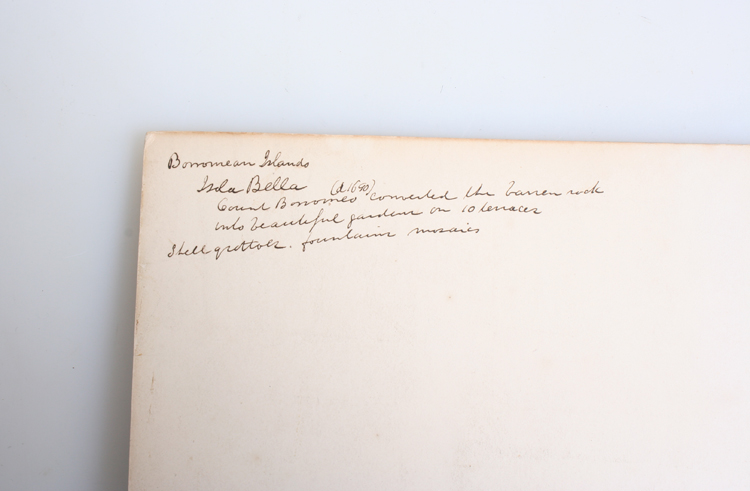 Borromean Islands
Isola Bella (d. 1690)
Count Borromeo converted the barren rock
into beautiful gardens on 10 terraces
Shell grottoes. fountains mosaics